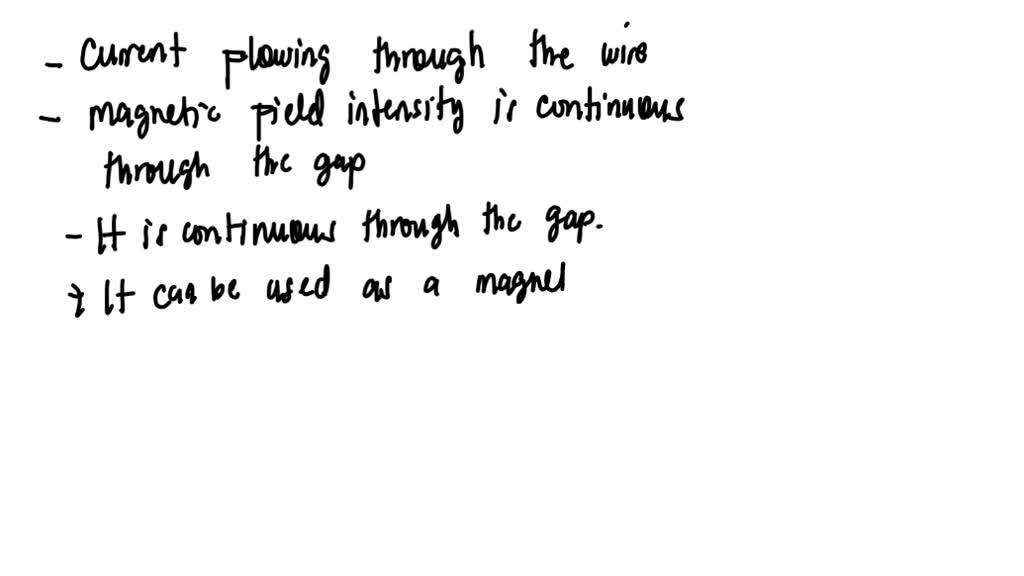 - Current flowing through the wire
- magnetic field intensity is continuous
through the gap
- It is continuous through the gap.
+ It can be used as a magnet